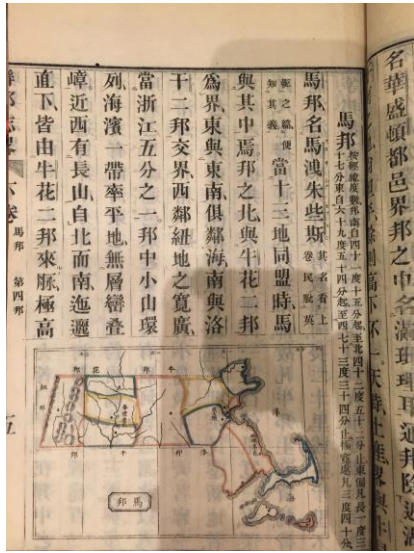 名華盛頓都邑界邦之中名
馬邦
按經緯度數邦南自四十一度十五分起至北四十二度五十二分止東偏凡長一度三
十七分東自六十九度五十四分起至西七十三度三十四分止極寬處凡三度四十分
馬邦名馬洩朱些斯
其名看上
卷民駛英
駛之總便
知其義
當十三地同盟時馬
與其中焉邦之北與牛花二邦
爲界東與東南俱鄰海南與洛
干二邦交界西鄰紐地之寬廣
當浙江五分之一邦中小山環
列海濱一帶率平地無層巒疊
嶂近西有長山自北而南迤邐
直下皆由牛花二邦來脈極高
馬邦
卷
馬邦
第四邦